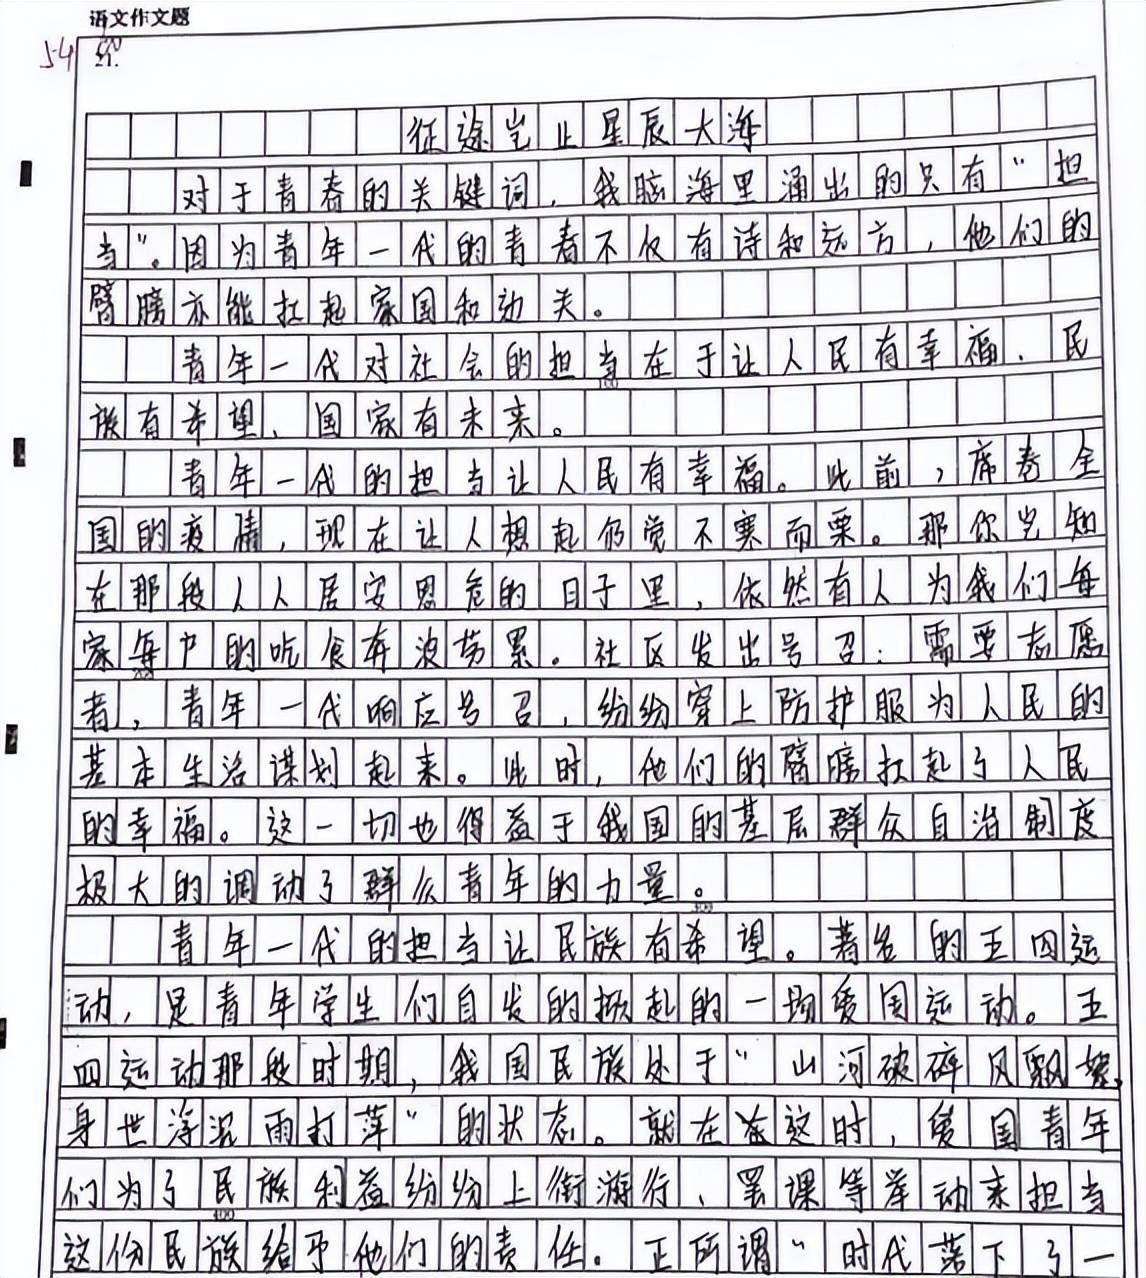 语文作文题
54
21.
征途岂止星辰大海
对于青春的关键词，我脑海里涌出的只有“担
当”。因为青年一代的青春不仅有诗和远方，他们的
臂膀亦能扛起家国和动关。
青年一代对社会的担当在于让人民有幸福、民
100
族有希望、国家有未来。
青年一代的担当让人民有幸福。此前，席卷全
国的疫情，现在让人想起仍觉不寒而栗。那你岂知
在那段人人居安思危的日子里，依然有人为我们每
家每户的吃食奔波劳累。社区发出号召：需要志愿
200
者，青年一代响应号召，纷纷穿上防护服为人民的
基本生活谋划起来。此时，他们的臂膀扛起了人民
的幸福。这一切也得益于我国的基层群众自治制度
极大的调动了群众青年的力量。
300
青年一代的担当让民族有希望。著名的五四运
动，是青年学生们自发的掀起的一场爱国运动。五
四运动那段时期，我国民族处于“山河破碎风飘絮，
身世浮沉雨打萍”的状态。就在这时，爱国青年
们为了民族利益纷纷上街游行、罢课等举动来担当
400
这份民族给予他们的责任。正所谓“时代落下了一